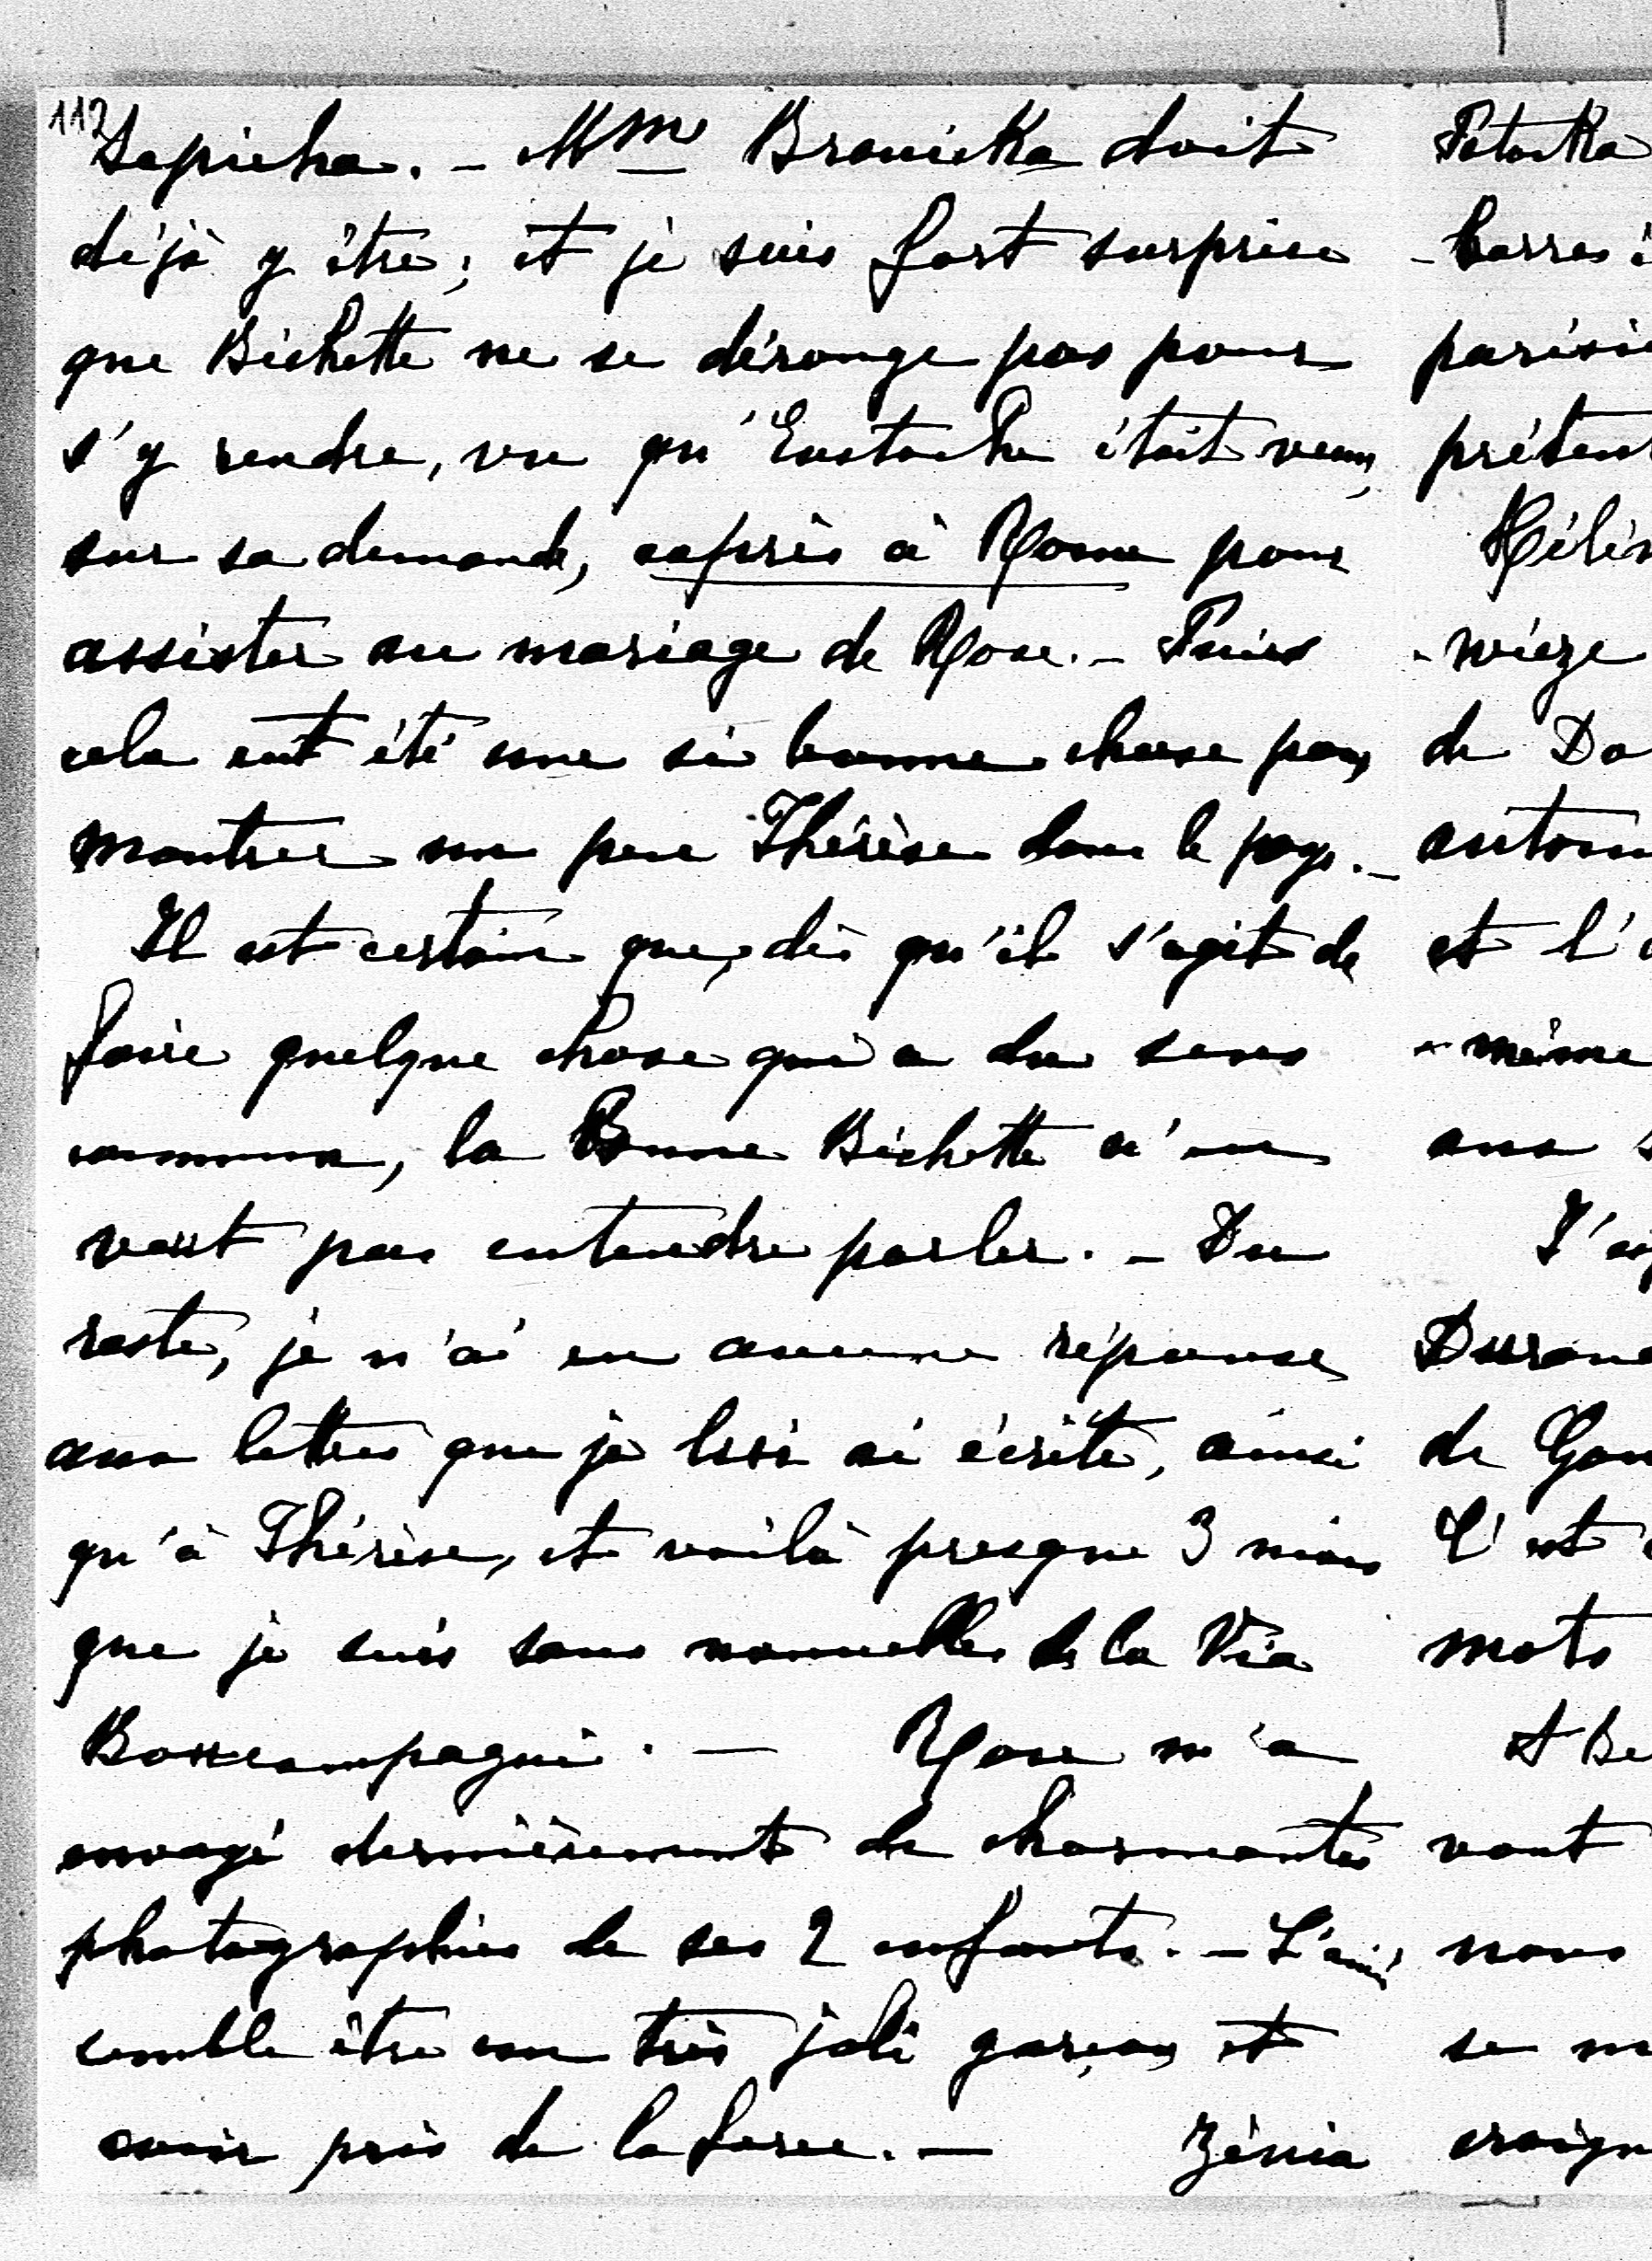 112
Sapieha. - Mme Branicka doit
déjà y être; et je suis fort surprise
que Bichette ne se dérange pas pour
s'y rendre, vu qu'Eustache était venu,
sur sa demande, exprès à Rome pour
assister au mariage de Rose. - Puis
cela eut été une si bonne chose pour
montrer un peu Thérèse dans le pays. -
Il est certain que, dès qu'il s'agit de
faire quelque chose qui a du sens
commun, la Bonne Bichette n'en
veut pas entendre parler. - Du
reste, je n'ai eu aucune réponse
aux lettres que je lui ai écrite, ainsi
qu'à Thérèse, et voilà presque 3 mois
que je suis sans nouvelles de la Via
Boncompagni. - Rose m'a
envoyé dernièrement de charmantes
photographies de ses 2 enfants. - L'ainé
semble être un très joli garçon et
avoir pris de la force. - Zénia
Potocka
-barras
parisie
prétent
Hélèn
-wieze
de Do
autom
et l'
-même
ans
J'ap
Duran
de Gon
C'est
mots
A Be
vont
nous
se m
craign